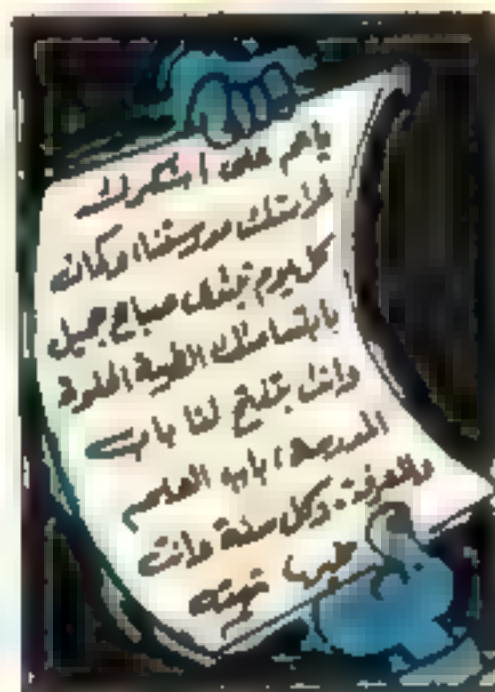 ياعم على اشكرك
لحراستك مدرستنا، وكمانه
كل يوم تبتدى صباح جميل
بابتسامتك الطيبة الحلوة
وانت بتفتح لنا باب
المدرسة، باب العلم
والمعرفة. وكل سنة وانت
طيب